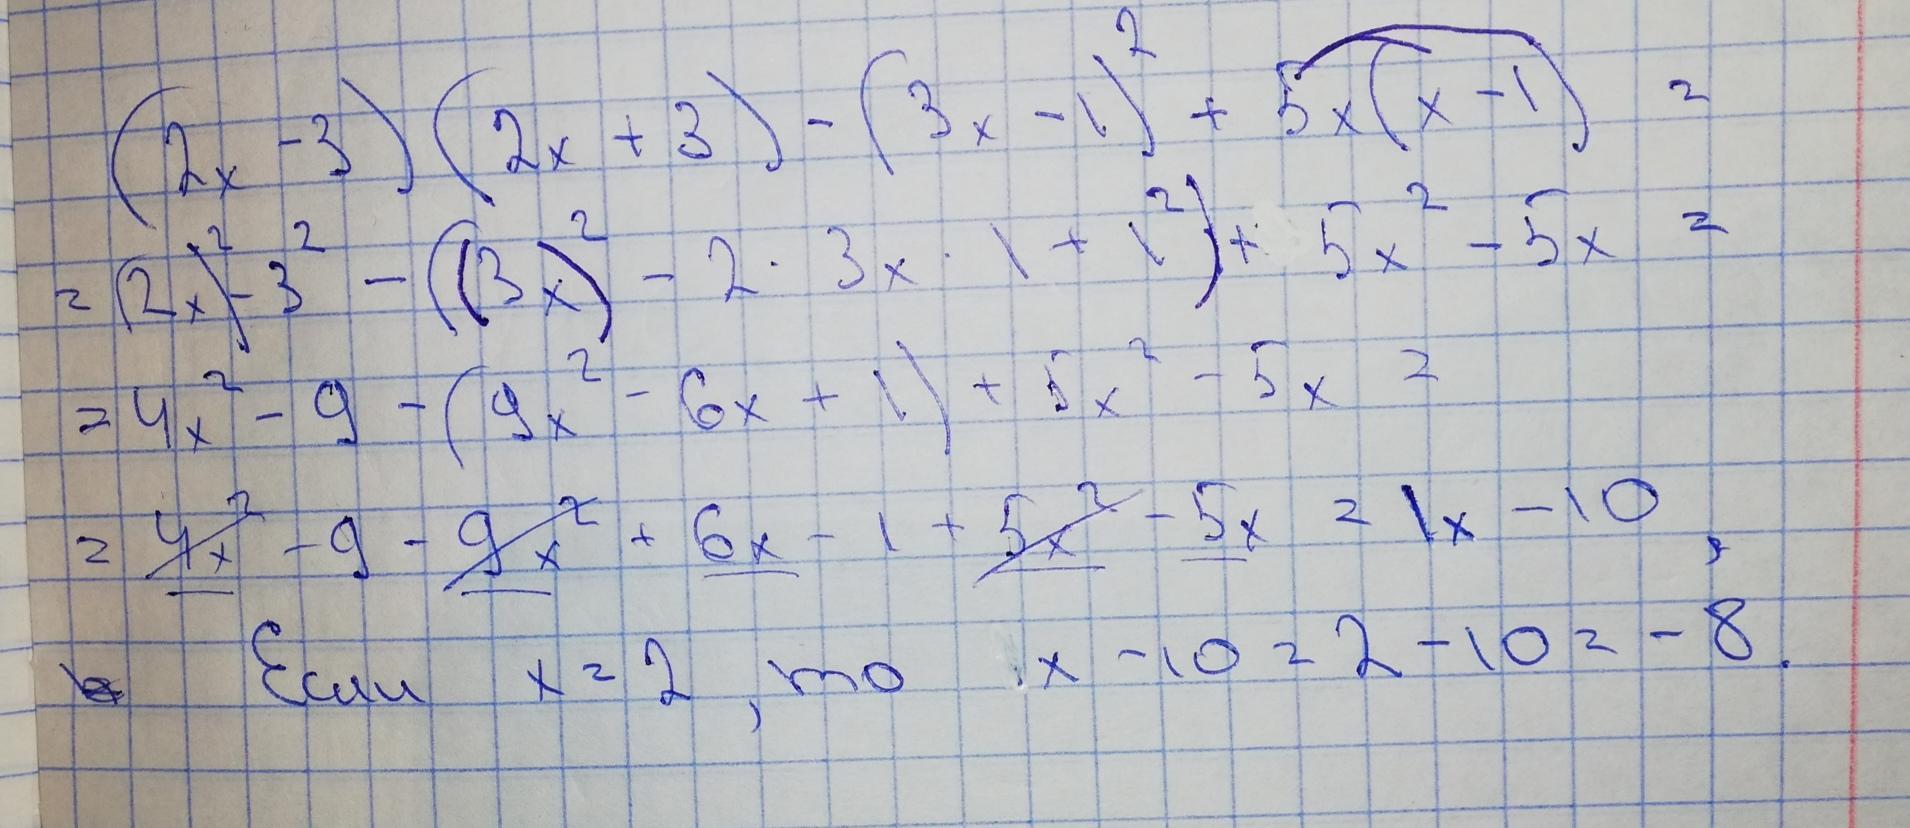 (2x - 3)(2x + 3) - (3x - 1)² + 5x(x - 1) =
= (2x)² - 3² - ((3x)² - 2 · 3x · 1 + 1²) + 5x² - 5x =
= 4x² - 9 - (9x² - 6x + 1) + 5x² - 5x =
= 4x² - 9 - 9x² + 6x - 1 + 5x² - 5x = 1x - 10,
Если x = 2, то 1x - 10 = 2 - 10 = - 8.